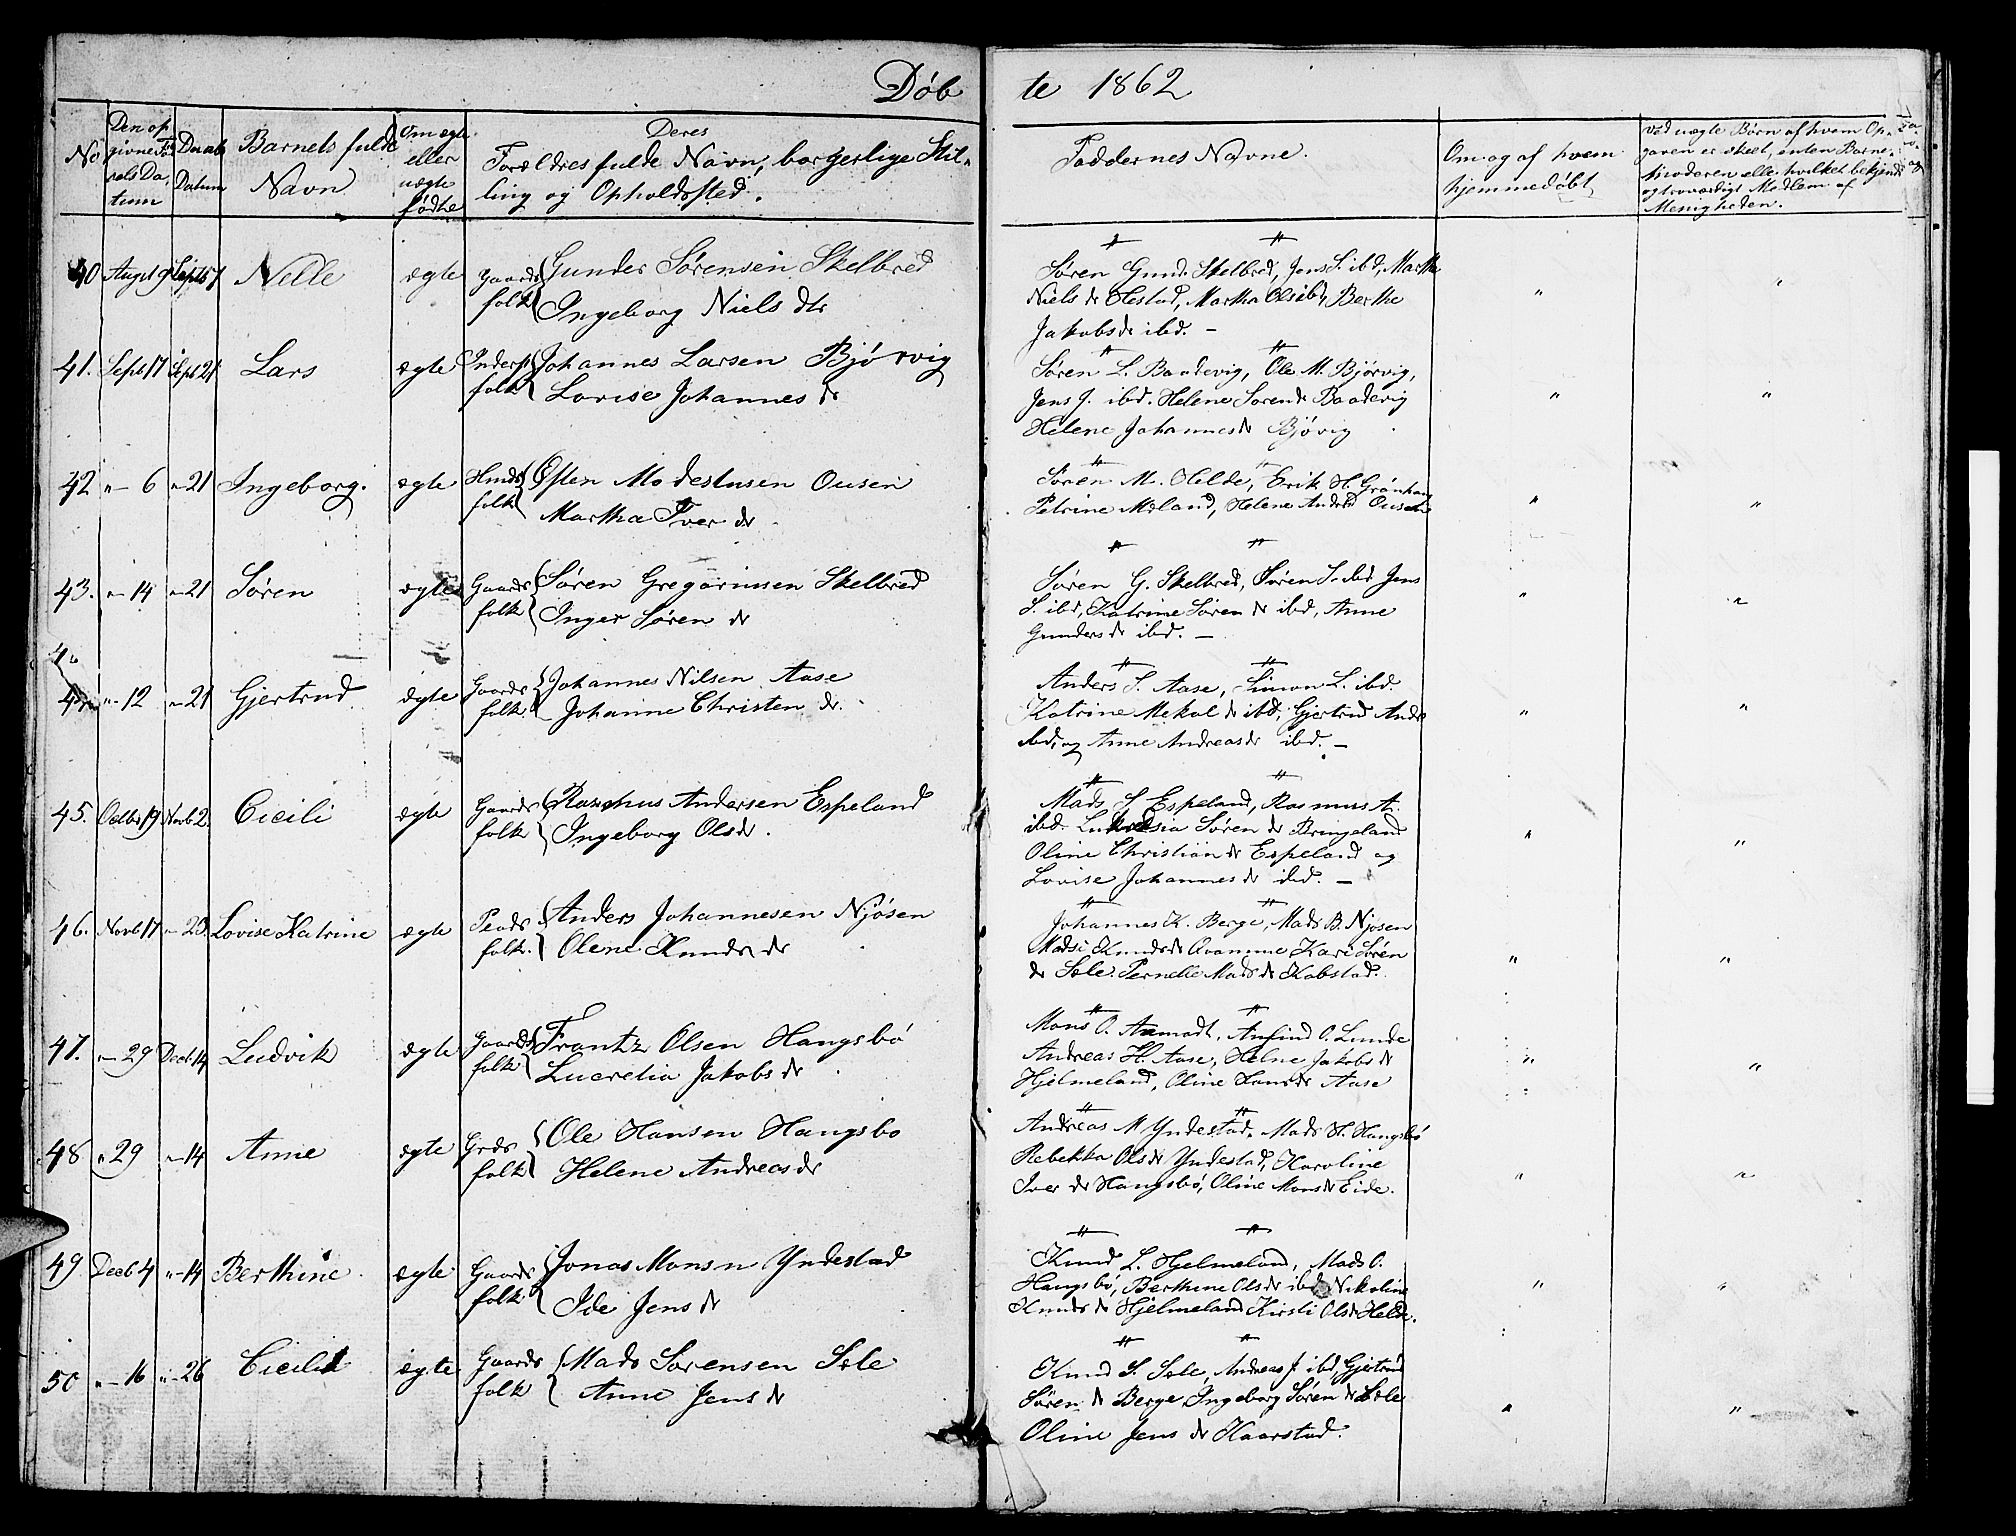 Døbte 1862
No
Den opgivne Fødsels Datum
Daabs Datum
Barnets fulde Navn
Om ægte eller uægte fødte
Deres Forældres fulde Navn, borgerlige Stilling og Opholdssted.
Faddernes Navne.
Om og af hvem hjemmedøbt
Ved uægte Børn af hvem Opgaven er skeet, enten Barnemoderen eller hvilket bekjendt og troværdigt Medlem af Menigheden.
40 Augst 9 Septb 7 Nelle ægte Gaards folk Gunder Sørensen Skelbred
Ingeborg Niels dtr
Søren Gund. Skelbred, Jens S. ibd, Martha
Niels dr Hestad, Martha Ols ibd, Berthe
Jakobsdr ibd. –
41. Septb 17 Septb 21 Lars ægte Inderst folk Johannes Larsen Bjørvig
Lovise Johannes dr
Søren L. Baadevig, Ole M. Bjørvig,
Jens J. ibd. Helene Sørensdr Baadevig
Helene Johannesdr Bjøvig
42 "– 6 "–21 Ingeborg. ægte Huusfolk Østen Modestusen Ousen
Martha Iver dr
Søren M. Helde, Erik H. Grønhaug
Petrine Meland, Helene Andrdr Ousen
43. "– 14 "–21 Søren ægte Gaards folk Søren Gregoriusen Skelbred
Inger Søren dr
Søren G. Skelbred, Søren S. ibd Jens
S. ibd, Katrine Søren dr ibd, Anne
Gunders dr ibd. –
"– 12 "–21 Gjertrud ægte Gaards folk Johannes Nilsen Aase
Johanne Christen dr.
Anders S. Aase, Simon L. ibd.
Katrine Mekal dr ibd, Gjertrud Andr
ibd, og Anne Andreasdr ibd. –
45. Octbr 19 Novb 2. Cicili ægte Gaards folk Rasmus Andersen Espeland
Ingeborg Olsdr.
Mads S Espeland, Rasmus A.
ibd. Lukretsia Søren dr Bringeland
Oline Christian dr Espeland og
Lovise Johannes dr ibd. –
46. Novb 17 "– 23. Lovise Katrine ægte Pladsfolk. Anders Johannesen Njøsen
Olene Knuds dr
Johannes K. Berge, Mads B. Njøsen
Madsi Knudsdr Qvamme Kari Søren
dr Sele. Pernelle Mads dr Kobstad.
47. "– 29 Decb 14 Ludvik ægte Gaards folk Frantz Olsen Hangsbø
Lucretia Jakobs dr
Mons O. Aamodt, Anfind O. Lunde
Andreas H. Aase, Helne Jakobs dr
Hjelmeland, Oline Hansdr Aase
48 " 29 "–14 Anne ægte Grds folk Ole Hansen Hangsbo
Helene Andreas dr
Andreas M Yndestad. Mads H. Hangsbø
Rebekka Ols dr Yndestad, Karoline
Iver dr Hangsbø, Oline Mons dr Eide.
49 Decb 4 "–14 Berthine ægte Gaards folk Jonas Monsn Yndestad
Ide Jens dr
Knud L. Hjelmeland, Mads O.
Hangsbø, Berthine Olsdr ibd Nikoline
Knuds dr Hjelmeland Kirsti Olsdr Helde.
50 "– 16 "–26 Cicili ægte Gaards folk Mads Sørensen Sele
Anne Jens dr
Knud S. Sele, Andreas J. ibd, Gjertrud
Søren dr Berge Ingeborg Søren dr Sele
Oline Jens dr Haarstad.